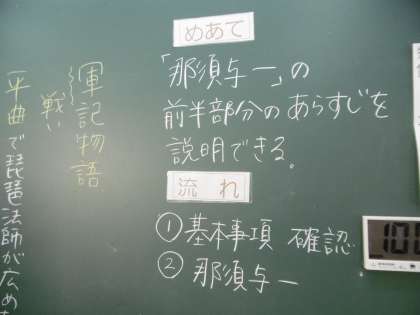 めあて
「那須与一」の
前半部分のあらすじを
説明できる。
流れ
① 基本事項 確認
② 那須与一
軍記物語
戦い
平曲で琵琶法師が広め